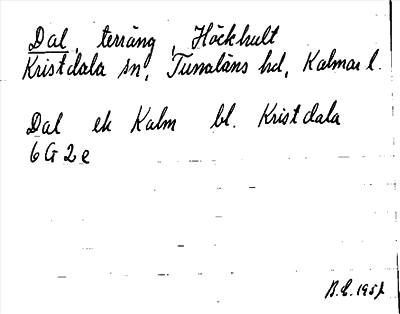 Dal, terräng, Höckhult
Kristdala sn, Tunaläns hd, Kalmar l.
Dal ek Kalm bl. Kristdala
6G2e
B.E. 1957